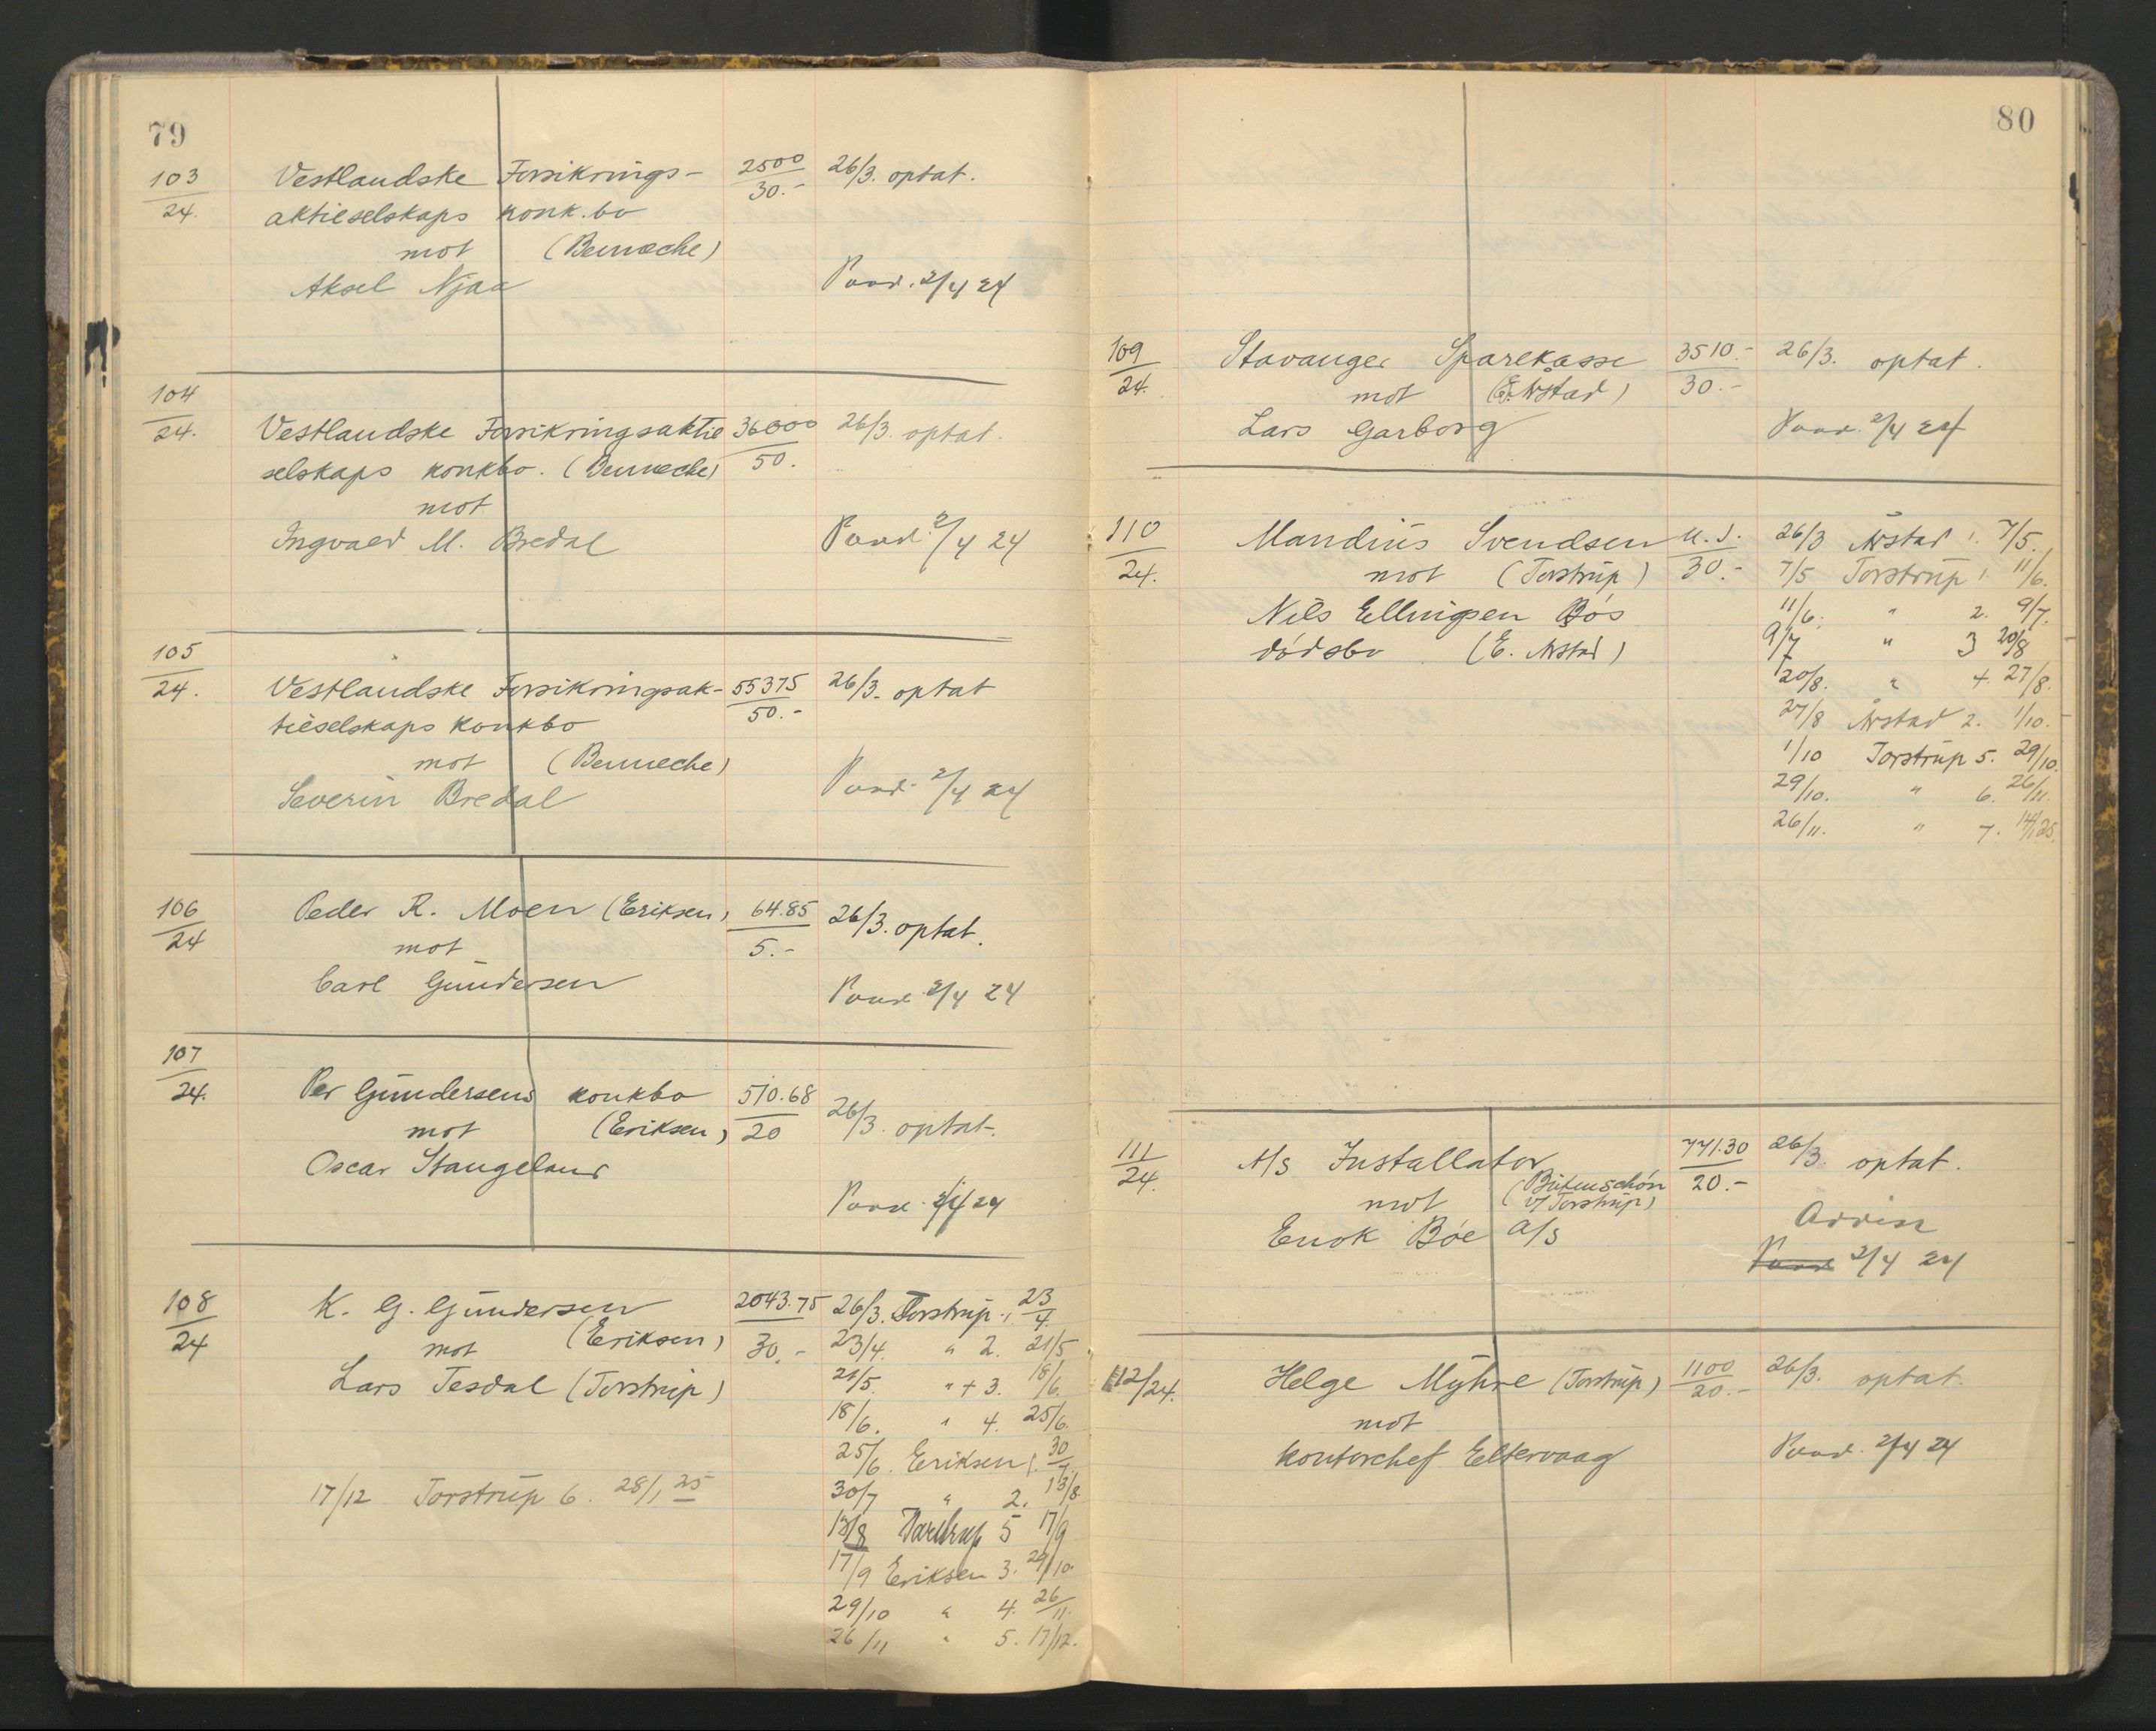 79
103/24. Vestlandske Forsikrings- 2500 26/3. optat.
aktieselskaps konk.bo 30.-
mot (Benneche)
Aksel Njaa 2/4 24
104/24. Vestlandske Forsikringsaktie 36000 26/3. optat.
selskaps konkbo. (Benneche) 50.
mot
Ingvald M. Bredal 2/4 24
105/24. Vestlandske Forsikringsak- 55375 26/3. optat
tieselskaps konkbo 50.-
mot (Benneche)
Severin Bredal 2/4 24
106/24 Peder R. Moen (Eriksen) 64.85 26/3. optat.
mot 5.-
Carl Gundersen 2/4 24
107/24. Per Gundersens konkbo 510.68 26/3. optat.
mot (Eriksen) 20
Oscar Stangeland 2/4 24
108/24 K. G. Gundersen 2043.75 26/3. Torstrup 1. 23/4.
mot (Eriksen) 30.- 23/4. " 2. 21/5
Lars Tesdal (Torstrup) 21/5. " + 3. 18/6.
18/6. " 4. 25/6.
25/6. Eriksen 1. 30/7.
17/12 Torstrup 6. 28/1 25
30/7 " 2. 13/8.
13/8 Torstrup 5 17/9
17/9 Eriksen 3. 29/10.
29/10 " 4. 26/11.
26/11 " 5. 17/12.
80
109/24. Stavanger Sparekasse 3510.- 26/3. optat.
mot (E. Årstad) 30.-
Lars Garborg 2/4 24
110/24. Mandius Svendsen u. s. 26/3 Årstad 1. 7/5.
mot (Torstrup) 30.- 7/5 Torstrup 1. 11/6.
Nils Ellingsen Bøs 11/6. " 2. 9/7.
dødsbo (E. Årstad) 9/7 " 3 20/8
20/8. " 4. 27/8.
27/8 Årstad 2. 1/10.
1/10 Torstrup 5. 29/10.
29/10. " 6. 26/11.
26/11. " 7. 14/1 25.
111/24. A/s Installator 771.30 26/3. optat.
mot (Butenschøn v/ Torstrup) 20.-
Avvisn
Enok Bøe A/s 2/4 24
112/24. Helge Myhre (Torstrup) 1100 26/3. optat.
mot 20.-
kontorchef Eltervaag 2/4 24